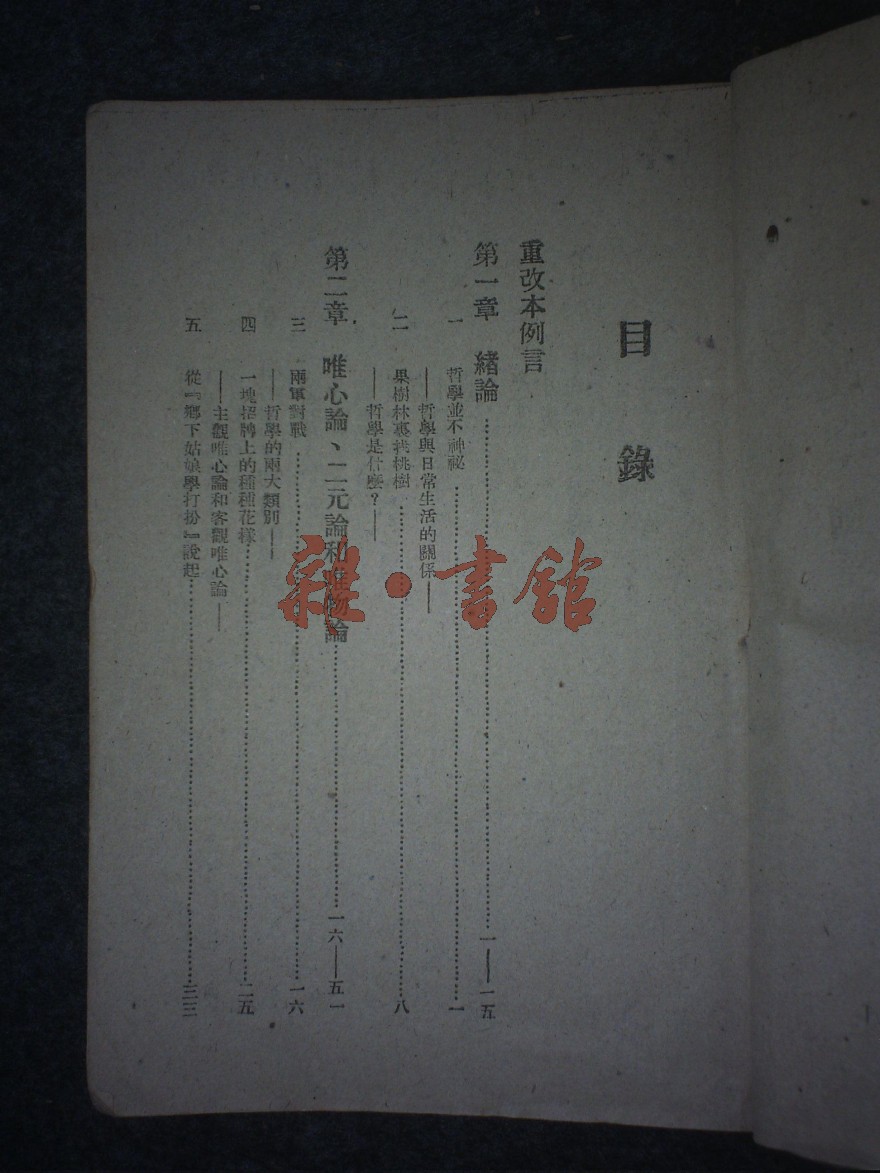 目錄
重改本例言
第一章 緒論……一——一五
一 哲學並不神祕……一
——哲學與日常生活的關係——
二 果樹林裏找桃樹……八
——哲學是什麼？——
第二章 唯心論、二元論和唯物論……一六——五一
三 兩軍對戰……一六
——哲學的兩大類別——
四 一塊招牌上的種種花樣……二五
——主觀唯心論和客觀唯心論——
五 從『鄉下姑娘學打扮』說起……三三
雜·書館